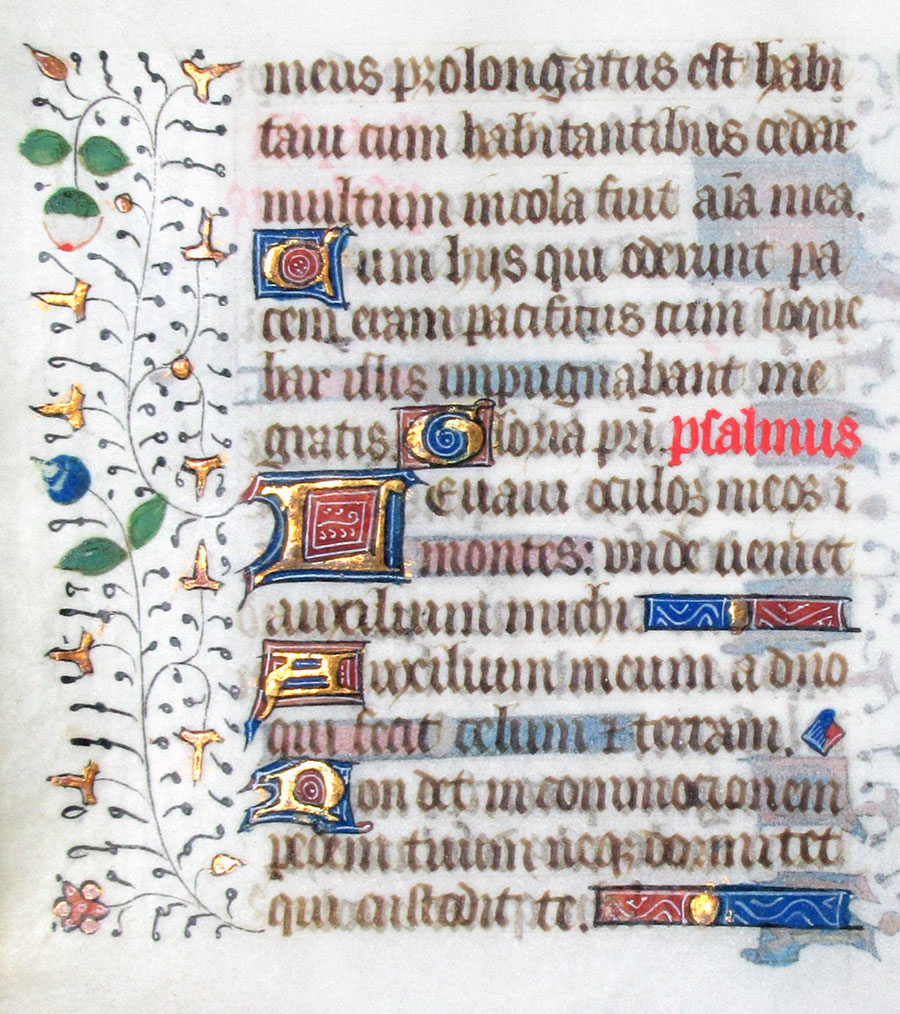 meus prolongatus est habi
taui cum habitantibus cedar
multum incola fuit aīa mea.
Cum hijs qui oderunt pa
cem eram pacificus cum loque
bar illis inpugnabant me
gratis Gloria pr̄i. psalmus
LEuaui oculos meos ī
montes: vnde ueniet
auxilium michi
Auxilium meum a dn̄o
qui fecit celum ⁊ terram.
Non det in commocionem
pedem tuum neqȝ dormitet
qui custodit te.